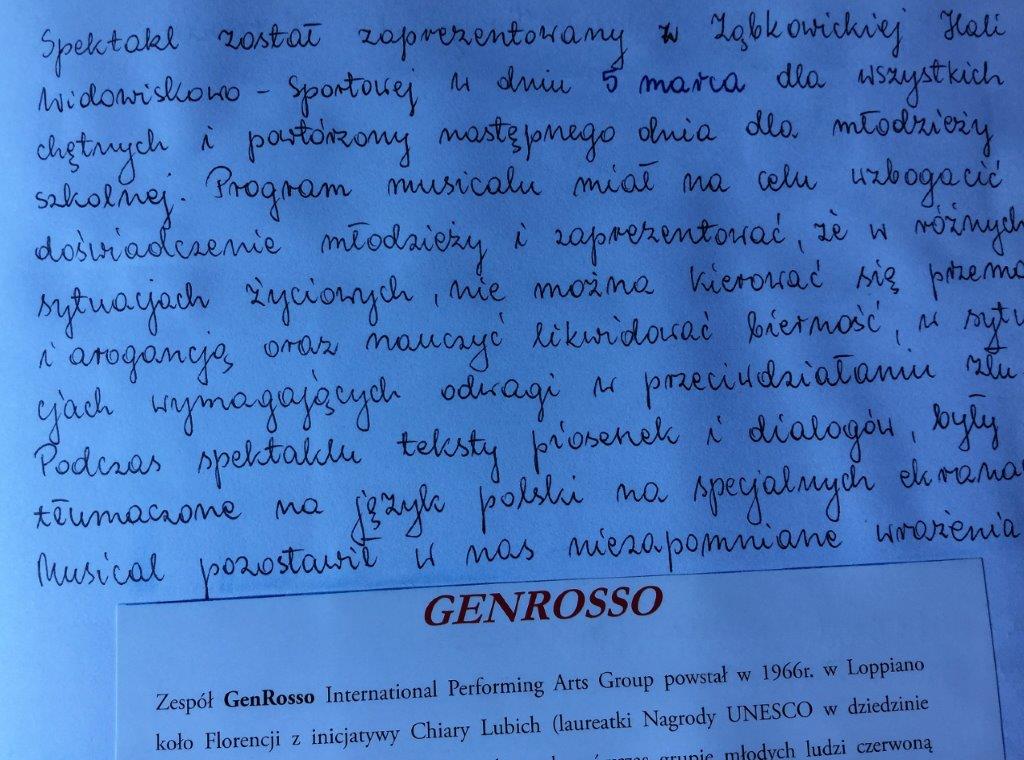 Spektakl został zaprezentowany w Ząbkowickiej Hali
Widowiskowo - Sportowej w dniu 5 marca dla wszystkich
chętnych i powtórzony następnego dnia dla młodzieży
szkolnej. Program musicalu miał na celu wzbogacić
doświadczenie młodzieży i zaprezentować, że w różnych
sytuacjach życiowych, nie można kierować się przemo
i arogancją oraz nauczyć likwidować bierność, w sytu
cjach wymagających odwagi w przeciwdziałaniu złu.
Podczas spektaklu teksty piosenek i dialogów, były
tłumaczone na język polski na specjalnych ekrana
Musical pozostawił w nas niezapomniane wrażenia
GENROSSO
Zespół GenRosso International Performing Arts Group powstał w 1966r. w Loppiano
koło Florencji z inicjatywy Chiary Lubich (laureatki Nagrody UNESCO w dziedzinie
grupie młodych ludzi czerwoną